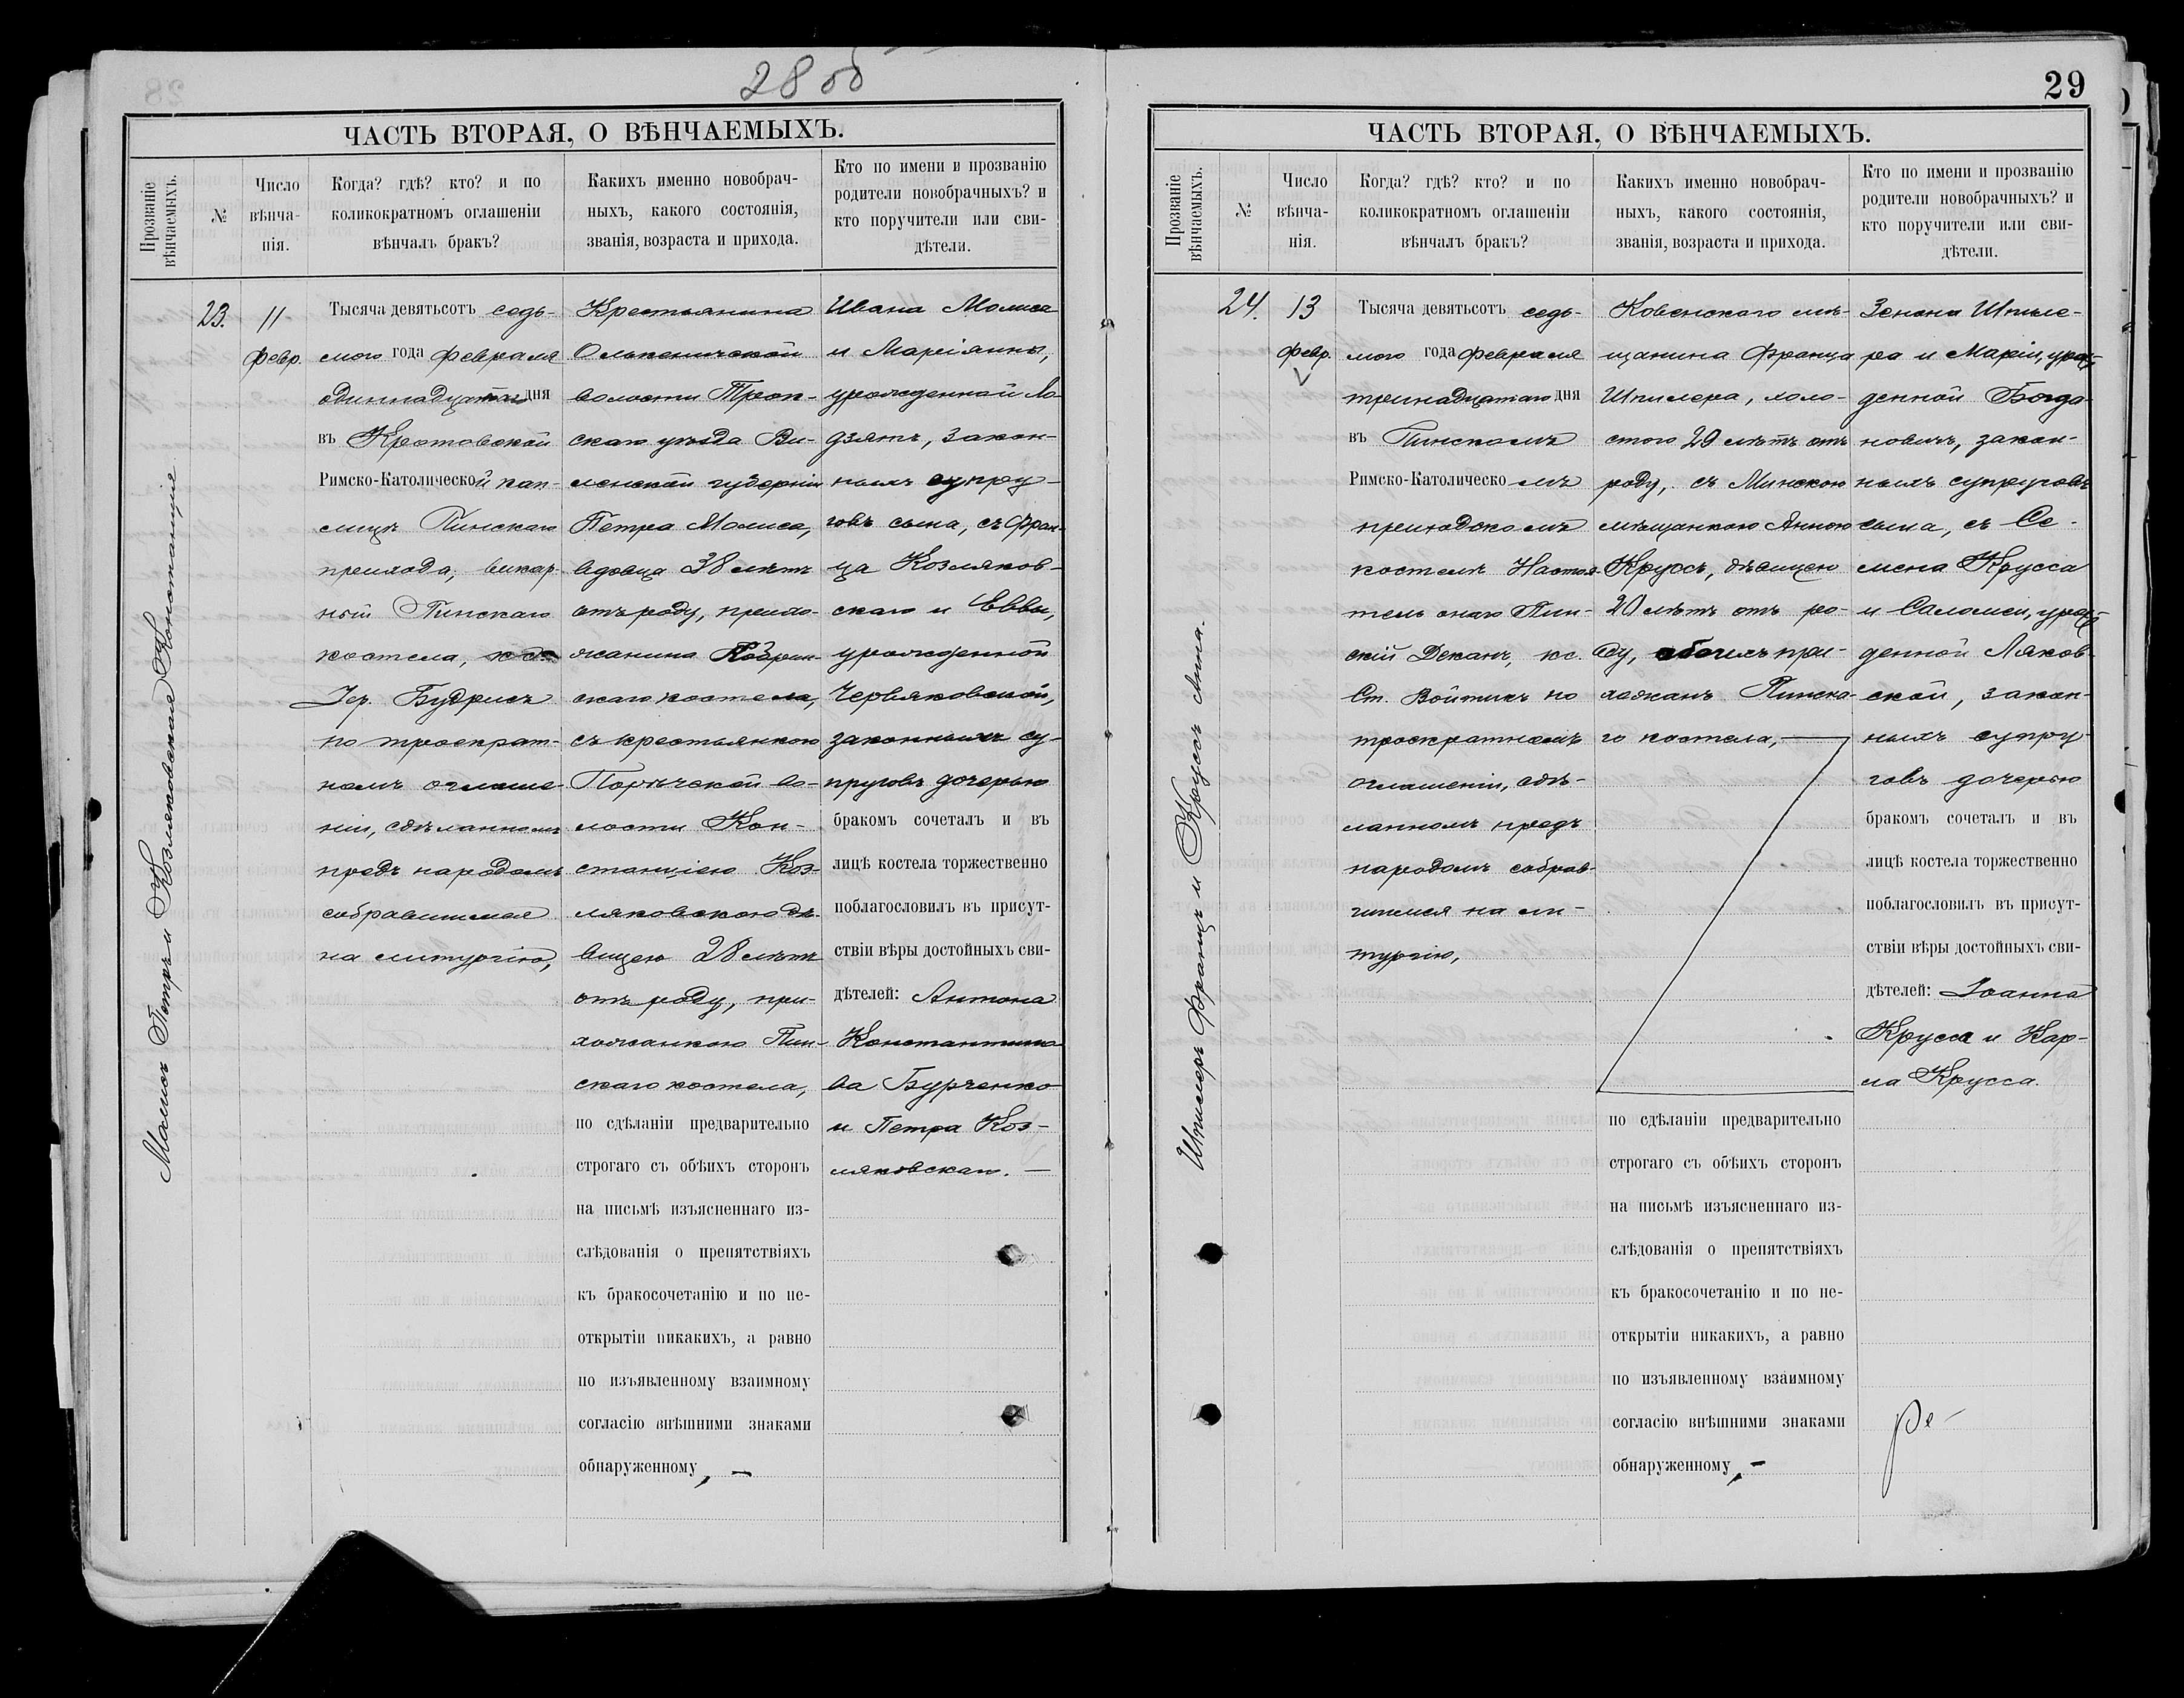 28 об
ЧАСТЬ ВТОРАЯ, О ВѢНЧАЕМЫХЪ.
Прозваніе
вѣнчаемыхъ.
№
Число
вѣнча-
нія.
Когда? гдѣ? кто? и по
коликократномъ оглашеніи
вѣнчалъ бракъ?
Какихъ именно новобрач-
ныхъ, какого состоянія,
званія, возраста и прихода.
Кто по имени и прозванію
родители новобрачныхъ? и
кто поручители или сви-
дѣтели.
Молисъ Петръ и Козляковская Констанція
23.
11
Февр.
Тысяча девятьсотъ седь-
мого года Февраля
одиннадцатаго дня
въ Кротовской
Римско-Католической кап-
лицѣ Пинскаго
прихода, викар-
ный Пинскаго
костела,
Іер. Будрисъ
по троекрат-
номъ оглаше-
ніи, сдѣланномъ
предъ народомъ
собравшимся
на литургію,
Крестьянина
Олькеникской
волости Трок-
скаго уѣзда Ви-
ленской губерніи
Петра Молиса,
вдовца 38 лѣтъ
отъ роду, прихо-
жанина Кобрин-
скаго костела,
съ крестьянкою
Порѣчской во-
лости Кон-
станціею Коз-
ляковскою дѣ-
вицею 28 лѣтъ
отъ роду, при-
хожанкою Пин-
скаго костела,
по сдѣланіи предварительно
строгаго съ обѣихъ сторонъ
на письмѣ изъясненнаго из-
слѣдованія о препятствіяхъ
къ бракосочетанію и по не-
открытіи никакихъ, а равно
по изъявленному взаимному
согласію внѣшними знаками
обнаруженному, —
Ивана Молиса
и Маріанны,
урожденной Ло-
дзятъ, закон-
ныхъ супру-
говъ сына, съ Фран-
ца Козляков-
скаго и Еввы,
урожденной
Червяковской,
законныхъ су-
пруговъ дочерью
бракомъ сочеталъ и въ
лицѣ костела торжественно
поблагословилъ въ присут-
ствіи вѣры достойныхъ сви-
дѣтелей: Антона
Константино-
ва Бурченко
и Петра Коз-
ляковскаго. —
29
ЧАСТЬ ВТОРАЯ, О ВѢНЧАЕМЫХЪ.
Прозваніе
вѣнчаемыхъ.
№
Число
вѣнча-
нія.
Когда? гдѣ? кто? и по
коликократномъ оглашеніи
вѣнчалъ бракъ?
Какихъ именно новобрач-
ныхъ, какого состоянія,
званія, возраста и прихода.
Кто по имени и прозванію
родители новобрачныхъ? и
кто поручители или сви-
дѣтели.
Шпилеръ Францъ и Круссъ Анна.
24.
13
Февр.
Тысяча девятьсотъ седь-
мого года Февраля
тринадцатаго дня
въ Пинскомъ
Римско-Католическомъ
приходскомъ
костелѣ Настоя-
тель онаго Пин-
скій Деканъ, кс.
Ст. Войтикъ по
троекратномъ
оглашеніи, сдѣ-
ланномъ предъ
народомъ собрав-
шимся на ли-
тургію,
Ковенского мѣ-
щанина Франца
Шпилера, холо-
стого 29 лѣтъ отъ
роду, съ Минскою
мѣщанкою Анною
Круссъ, дѣвицею
20 лѣтъ отъ ро-
ду, обоихъ при-
хожанъ Пинска-
го костела, —
по сдѣланіи предварительно
строгаго съ обѣихъ сторонъ
на письмѣ изъясненнаго из-
слѣдованія о препятствіяхъ
къ бракосочетанію и по не-
открытіи никакихъ, а равно
по изъявленному взаимному
согласію внѣшними знаками
обнаруженному, —
Зенона Шпиле-
ра и Маріи, урож-
денной Богда-
новичъ, закон-
ныхъ супруговъ
сына, съ Се-
мена Крусса
и Саломеи, урож-
денной Ляков-
ской, закон-
ныхъ супру-
говъ дочерью
бракомъ сочеталъ и въ
лицѣ костела торжественно
поблагословилъ въ присут-
ствіи вѣры достойныхъ сви-
дѣтелей: Іоанна
Крусса и Кар-
ла Крусса.